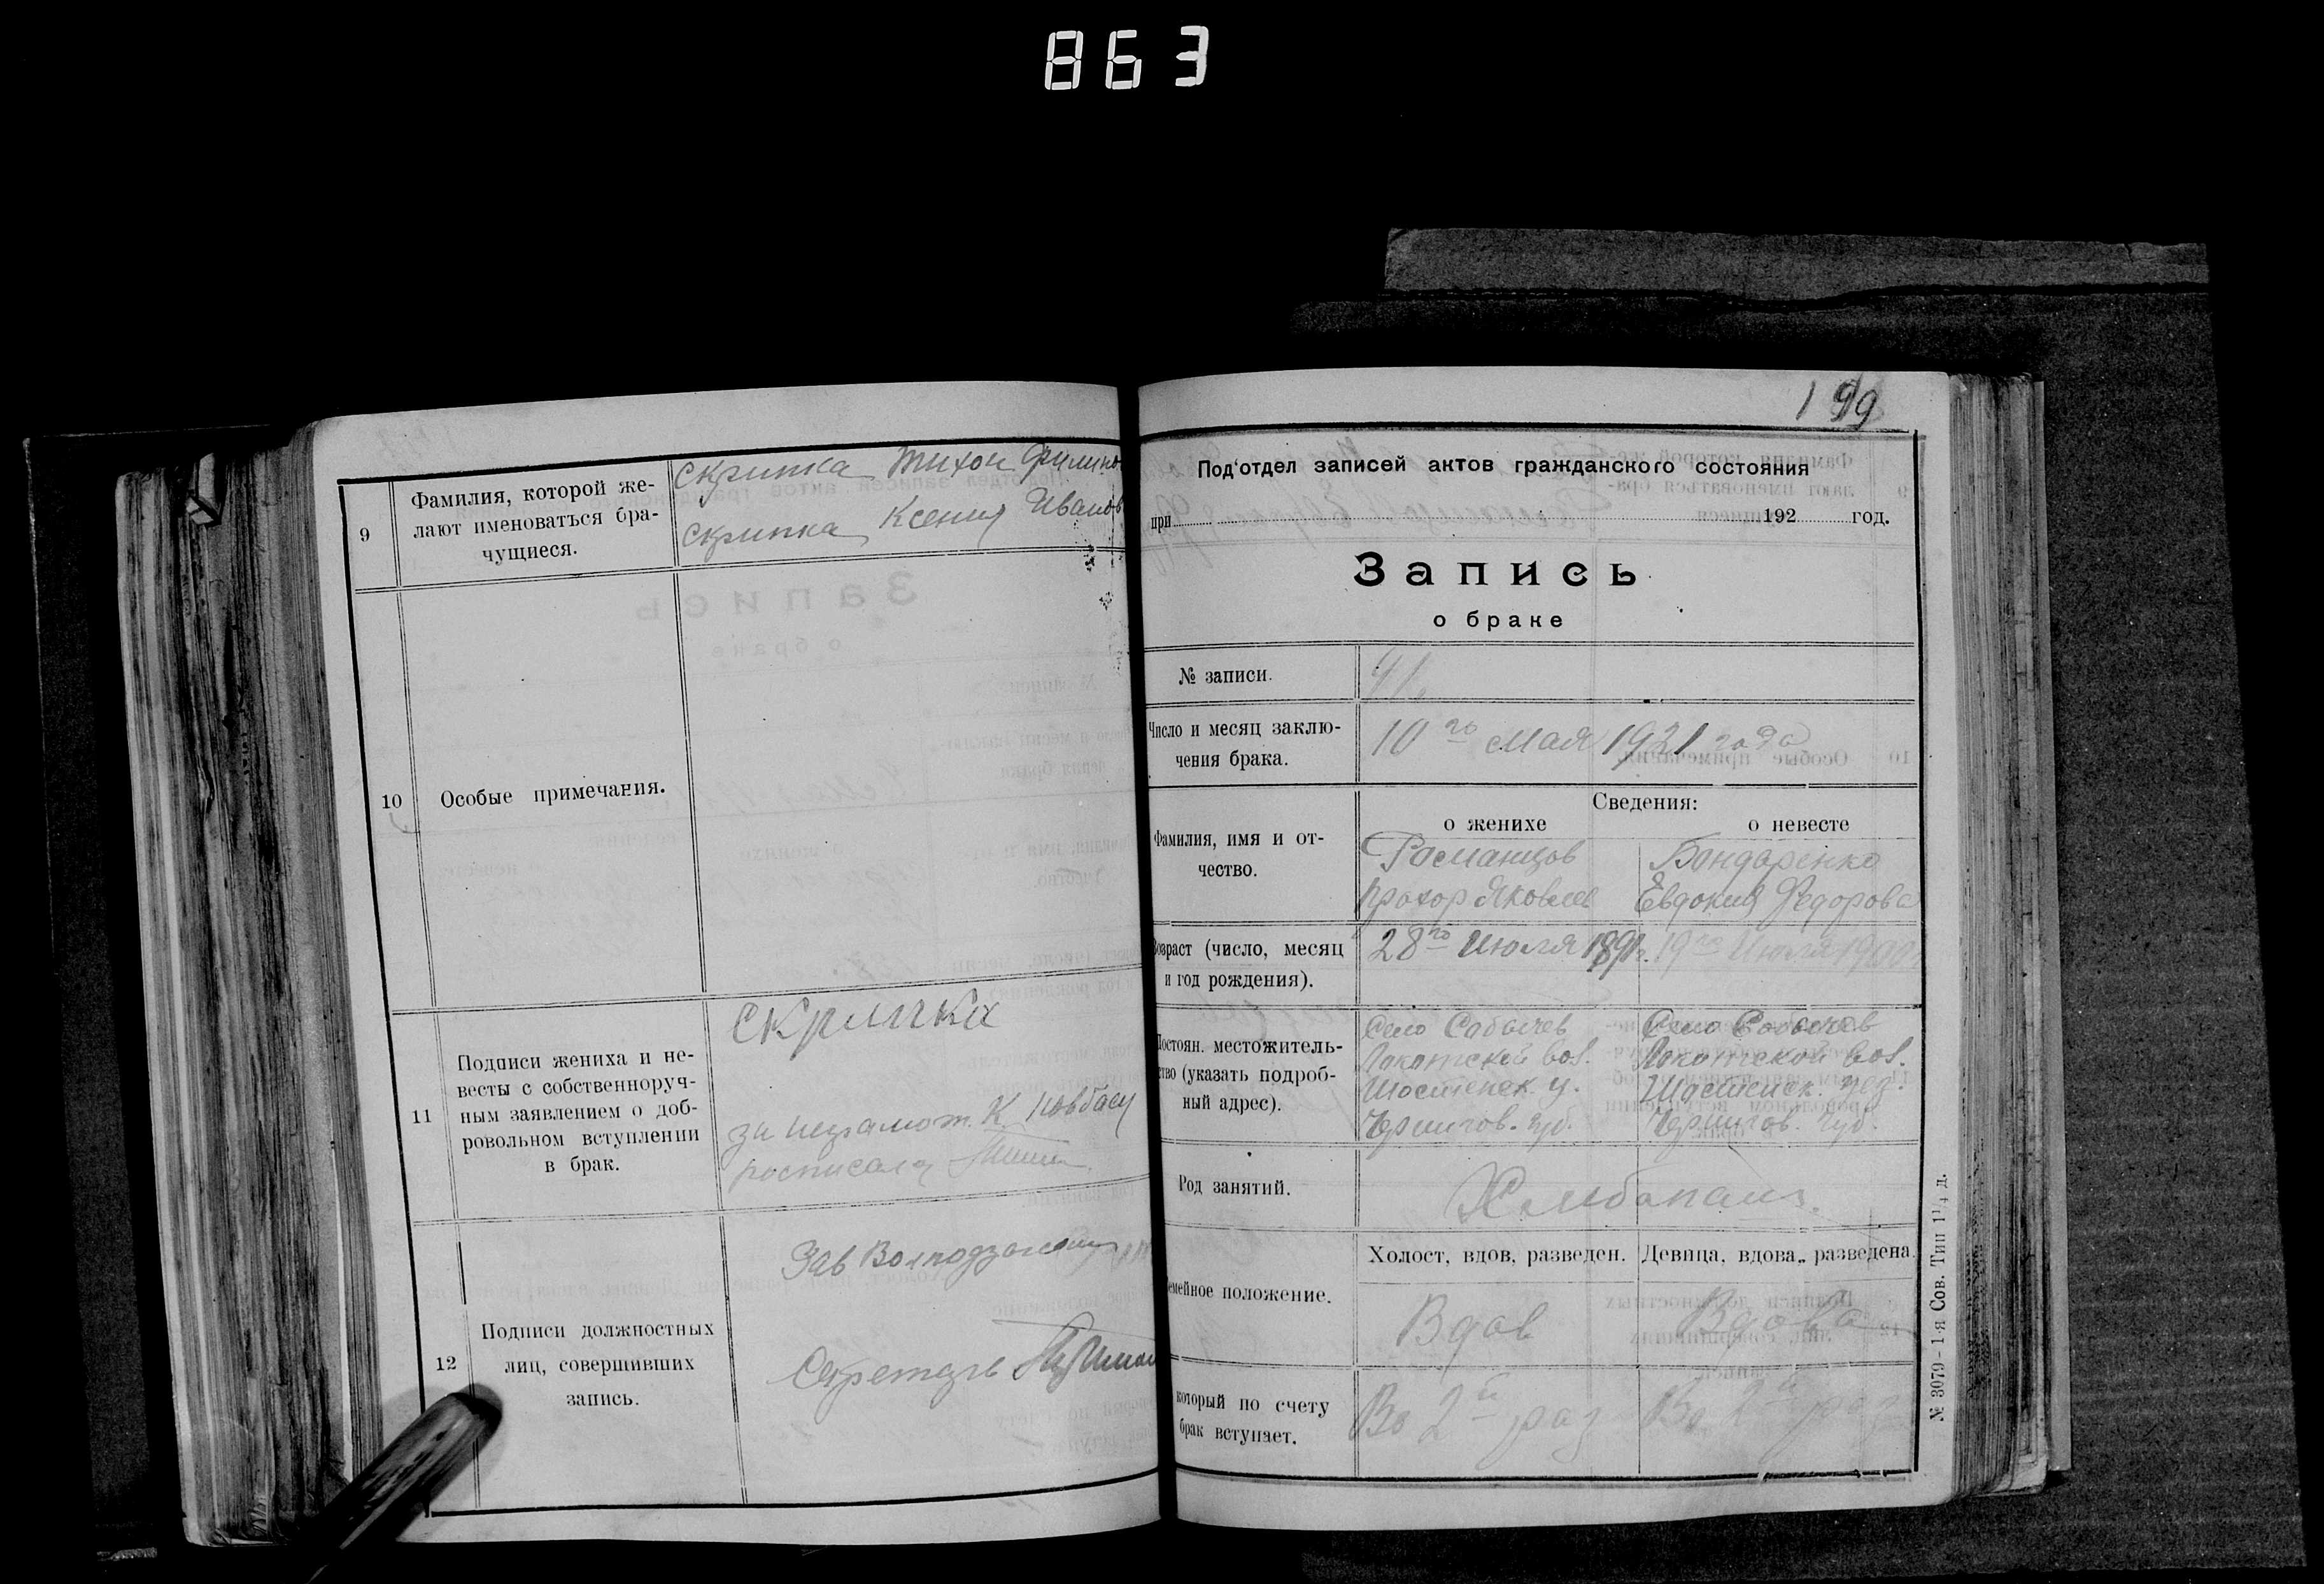 863
9
Фамилия, которой же-
лают именоваться бра-
чущиеся.
Скрипка Тихон Филипо
Скрипка Ксения Иванов
10
Особые примечания.
11
Подписи жениха и не-
весты с собственноруч-
ным заявлением о доб-
ровольном вступлении
в брак.
Скрипка
за неграмот. К. Ковбасу
росписался
12
Подписи должностных
лиц, совершивших
запись.
Зав
Секретарь
199
Под'отдел записей актов гражданского состояния
при 192 год.
Запись
о браке
№ записи.
41.
Число и месяц заклю-
чения брака.
10го мая 1921 года
Сведения:
о женихе о невесте
Фамилия, имя и от-
чество.
Романцов
Прохор Яковлев
Бондаренко
Евдокия Федорова
Возраст (число, месяц
и год рождения).
28го Июля 1891г.
19го Июля 1900
Постоян. местожитель-
ство (указать подроб-
ный адрес).
Село Собычев
Локотской вол.
Шостенск. у.
Чернигов. губ.
Село Собычев
Локотской вол.
Шостенск. уез.
Чернигов. губ.
Род занятий.
Хлебопаш.
Семейное положение.
Холост, вдов, разведен. Девица, вдова, разведена
Вдов
Вдова
который по счету
брак вступает.
Во 2й раз
Во 2й раз
№ 3079 - 1-я Сов. Тип